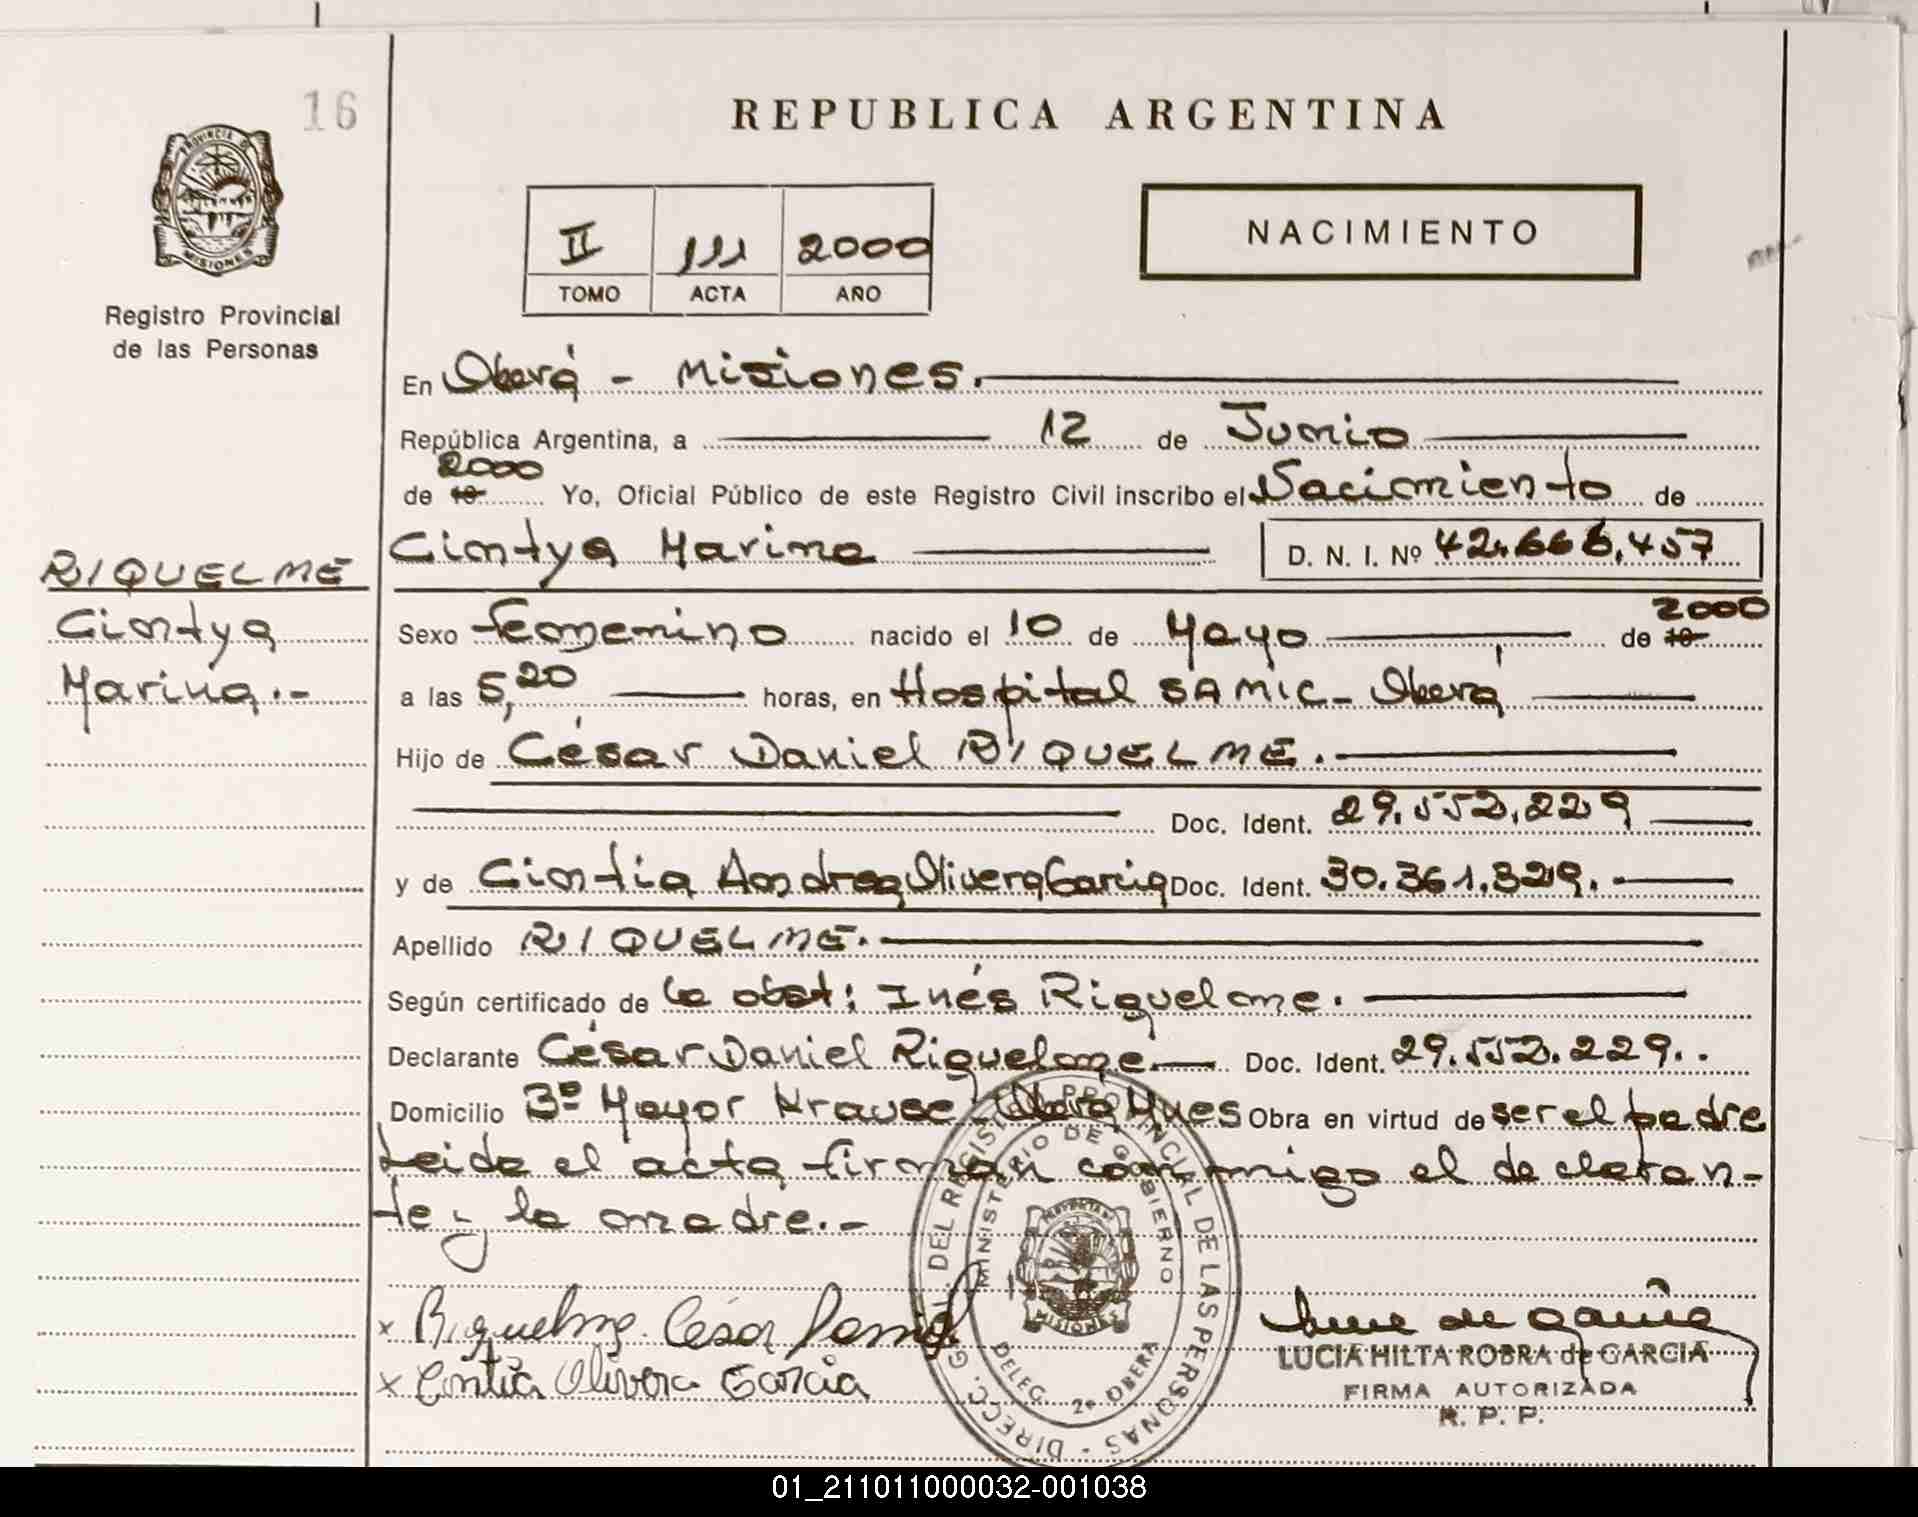 16
REPUBLICA ARGENTINA
PROVINCIA D
MISIONES
Registro Provincial
de las Personas
II 111 2000
TOMO ACTA AÑO
NACIMIENTO
En Oberá - Misiones.
República Argentina, a 12 de Junio
2000
de 19 Yo, Oficial Público de este Registro Civil inscribo el Nacimiento de
Cintya Marina D. N. I. Nº 42.666.457
RIQUELME
Cintya
Marina.-
2000
Sexo femenino nacido el 10 de Mayo de 19
a las 5,20 horas, en Hospital SAMIC - Oberá
Hijo de César Daniel RIQUELME.
Doc. Ident. 29.552.229
y de Cintia Andrea Olivera Garcia Doc. Ident. 30.361.329.
Apellido RIQUELME.
Según certificado de la obst: Inés Riquelme.
Declarante César Daniel Riquelme Doc. Ident. 29.552.229.
Domicilio 3º Mayor Krause Oberá Mnes Obra en virtud de ser el padre
Leida el acta firman conmigo el declaran-
te y la madre.-
DIRECC. GRAL. DEL REGISTRO PROVINCIAL DE LAS PERSONAS -
MINISTERIO DE GOBIERNO
MISIONES
DELEG. 2º OBERA
x Riquelme César Daniel
x Cintia Olivera Garcia
LUCIA HILTA ROBRA de GARCIA
FIRMA AUTORIZADA
R. P. P.
01_211011000032-001038